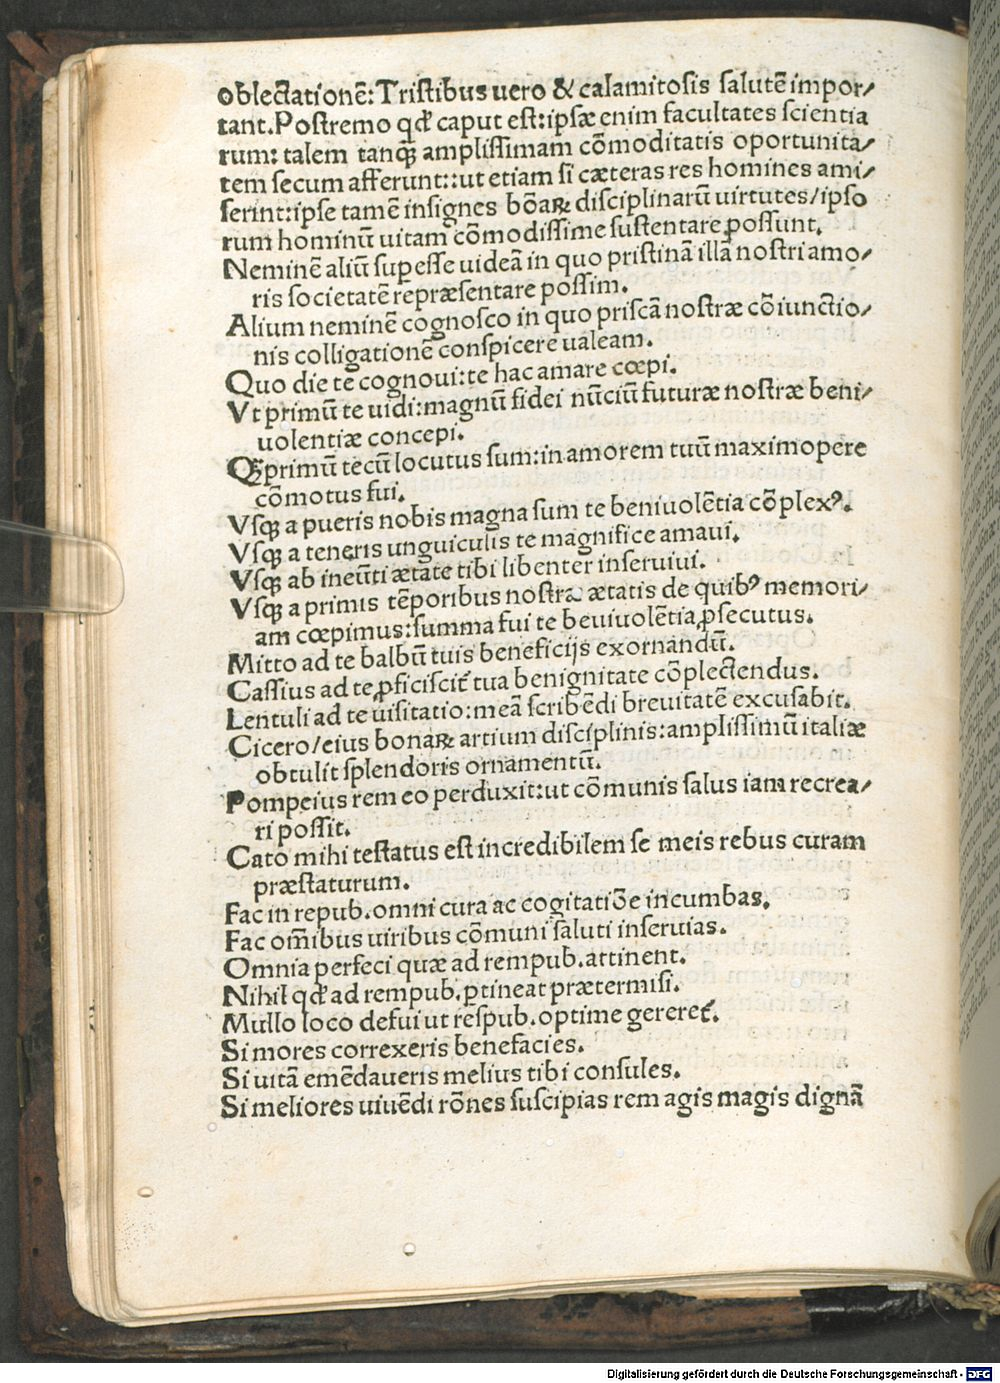 oblectationē: Tristibus uero & calamitosis salutē impor/
tant. Postremo qđ caput est: ipsæ enim facultates scientia
rum: talem tanꝗ̄ amplissimam cōmoditatis oportunita/
tem secum afferunt:: ut etiam si cæteras res homines ami/
serint: ipse tamē insignes bōaꝝ disciplinarū uirtutes/ ipso
rum hominū uitam cōmodissime sustentare ꝓossunt.
Neminē aliū supesse uideā in quo pristinā illā nostri amo/
ris societatē repræsentare possim.
Alium neminē cognosco in quo priscā nostræ cōiunctio/
nis colligationē conspicere ualeam.
Quo die te cognoui: te hac amare cœpi.
Vt primū te uidi: magnū fidei nūciū futuræ nostræ beni/
uolentiæ concepi.
Qꝫ primū tecū locutus sum: in amorem tuū maximopere
cōmotus fui.
Vsqꝫ a pueris nobis magna sum te beniuolētia cōplexꝰ.
Vsqꝫ a teneris unguiculis te magnifice amaui.
Vsqꝫ ab ineūti ætate tibi libenter inseruiui.
Vsqꝫ a primis tēporibus nostræ ætatis de quibꝰ memori/
am cœpimus: summa fui te beuiuolētia ꝓsecutus.
Mitto ad te balbū tuis beneficijs exornandū.
Cassius ad te ꝓficiscit̄ tua benignitate cōplectendus.
Lentuli ad te uisitatio: meā scribēdi breuitatē excusabit.
Cicero/ eius bonaꝝ artium disciplinis: amplissimū italiæ
obtulit splendoris ornamentū.
Pompeius rem eo perduxit: ut cōmunis salus iam recrea/
ri possit.
Cato mihi testatus est incredibilem se meis rebus curam
præstaturum.
Fac in repub. omni cura ac cogitatiōe incumbas.
Fac om̄ibus uiribus cōmuni saluti inseruias.
Omnia perfeci quæ ad rempub. attinent.
Nihil qđ ad rempub. ꝑtineat prætermisi.
Mullo loco defui ut respub. optime gereret̄.
Si mores correxeris benefacies.
Si uitā emēdaueris melius tibi consules.
Si meliores uiuēdi rōnes suscipias rem agis magis dignā
Digitalisierung gefördert durch die Deutsche Forschungsgemeinschaft - DFG